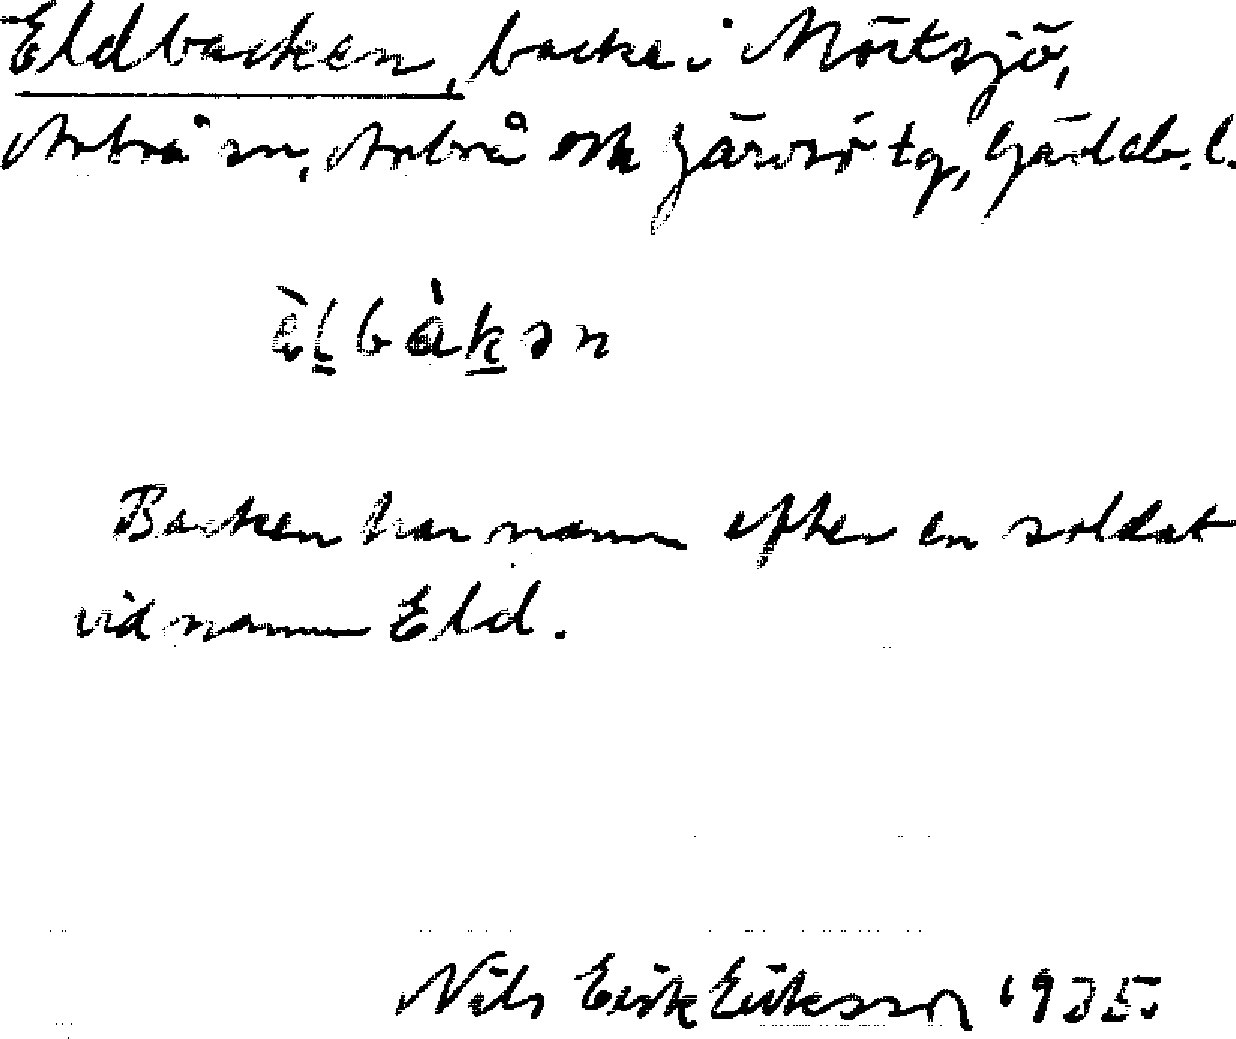 Eldbacken, backe i Mörtsjö,
Arbrå sn, Arbrå och Järvsö tg, Gävleb. l.
èlbàkən
Backen har namn efter en soldat
vid namn Eld.
Nils Erik Eriksson 1935.